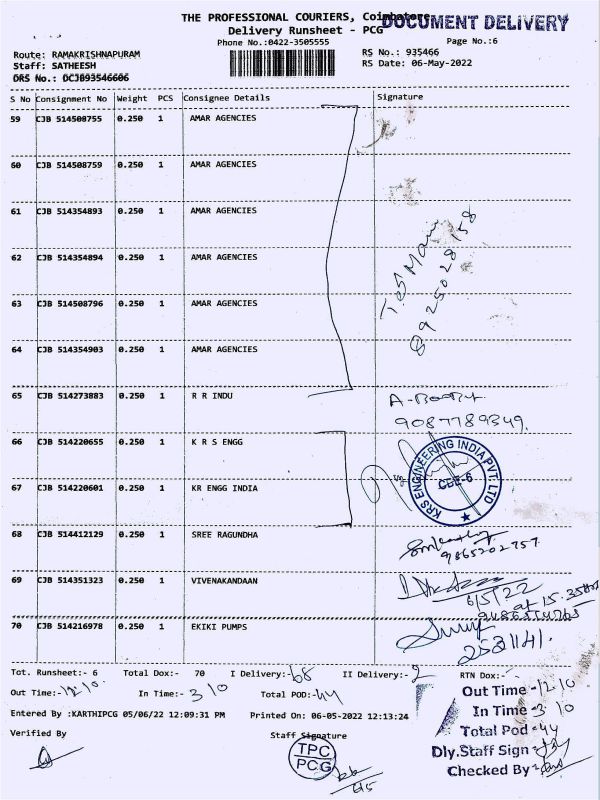 THE PROFESSIONAL COURIERS, Coimbatore
DOCUMENT DELIVERY
Delivery Runsheet - PCG
Phone No.:0422-3505555
Page No.:6
Route: RAMAKRISHNAPURAM
RS No.: 935466
Staff: SATHEESH
RS Date: 06-May-2022
DRS No.: DCJB93546606
S No Consignment No Weight PCS Consignee Details Signature
59 CJB 514508755 0.250 1 AMAR AGENCIES
60 CJB 514508759 0.250 1 AMAR AGENCIES
61 CJB 514354893 0.250 1 AMAR AGENCIES
62 CJB 514354894 0.250 1 AMAR AGENCIES
63 CJB 514508796 0.250 1 AMAR AGENCIES
8925028158
64 CJB 514354903 0.250 1 AMAR AGENCIES
65 CJB 514273883 0.250 1 R R INDU
9087789349.
66 CJB 514220655 0.250 1 K R S ENGG
KRS ENGINEERING INDIA PVT. LTD
CBE-6
67 CJB 514220601 0.250 1 KR ENGG INDIA
68 CJB 514412129 0.250 1 SREE RAGUNDHA
9865202757
69 CJB 514351323 0.250 1 VIVENAKANDAAN
6/5/22
at 15.35Hrs
70 CJB 514216978 0.250 1 EKIKI PUMPS
2531141.
Tot. Runsheet:- 6 Total Dox:- 70 I Delivery:-68 II Delivery:-2 RTN Dox:-
Out Time:-12.10 In Time:- 3 10 Total POD:-44
Out Time-12 10
In Time-3 10
Total Pod-44
Dly.Staff Sign-
Checked By-
Entered By :KARTHIPCG 05/06/22 12:09:31 PM Printed On: 06-05-2022 12:13:24
Verified By
Staff Signature
TPC
PCG
6/5